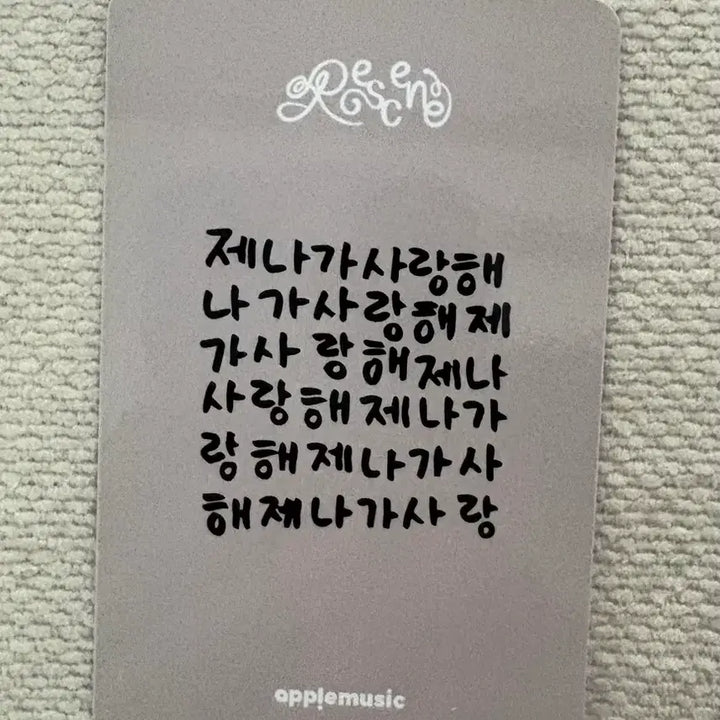 Crescendo
제나가사랑해
나가사랑해제
가사랑해제나
사랑해제나가
랑해제나가사
해제나가사랑
applemusic